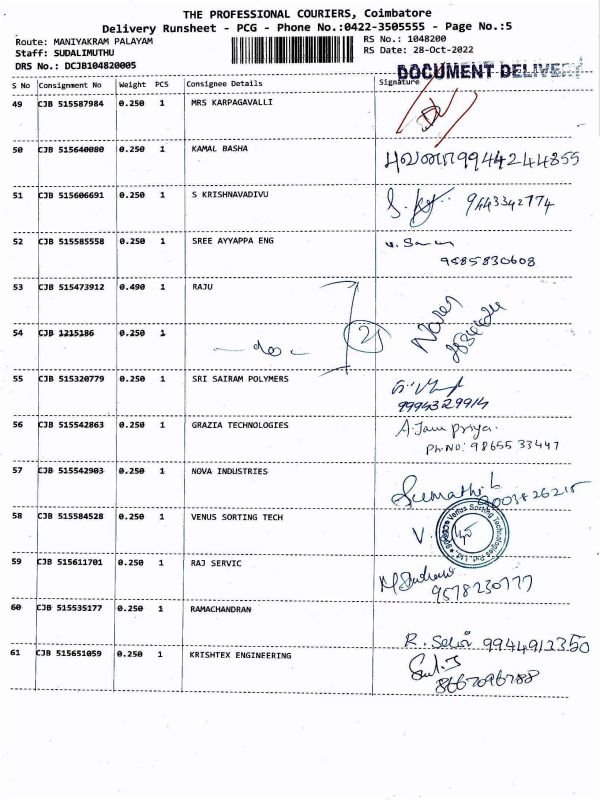 THE PROFESSIONAL COURIERS, Coimbatore
Delivery Runsheet - PCG - Phone No.:0422-3505555 - Page No.:5
Route: MANIYAKRAM PALAYAM
RS No.: 1048200
Staff: SUDALIMUTHU
RS Date: 28-Oct-2022
DRS No.: DCJB104820005
DOCUMENT DELIVERY
S No Consignment No Weight PCS Consignee Details Signature
49 CJB 515587984 0.250 1 MRS KARPAGAVALLI
50 CJB 515640080 0.250 1 KAMAL BASHA
புவனா 9944244855
51 CJB 515606691 0.250 1 S KRISHNAVADIVU
9443342774
52 CJB 515585558 0.250 1 SREE AYYAPPA ENG
9585830608
53 CJB 515473912 0.490 1 RAJU
54 CJB 1215186 0.250 1
- do - 2
55 CJB 515320779 0.250 1 SRI SAIRAM POLYMERS
9994329914
56 CJB 515542863 0.250 1 GRAZIA TECHNOLOGIES
A. Jam priya.
Ph.No: 98655 33447
57 CJB 515542903 0.250 1 NOVA INDUSTRIES
Sumathi L
58 CJB 515584528 0.250 1 VENUS SORTING TECH
V.
Venus Sorting Technologies Pvt. Ltd.
59 CJB 515611701 0.250 1 RAJ SERVIC
9578230777
60 CJB 515535177 0.250 1 RAMACHANDRAN
R. Selvi 9944912350
61 CJB 515651059 0.250 1 KRISHTEX ENGINEERING
8667096788